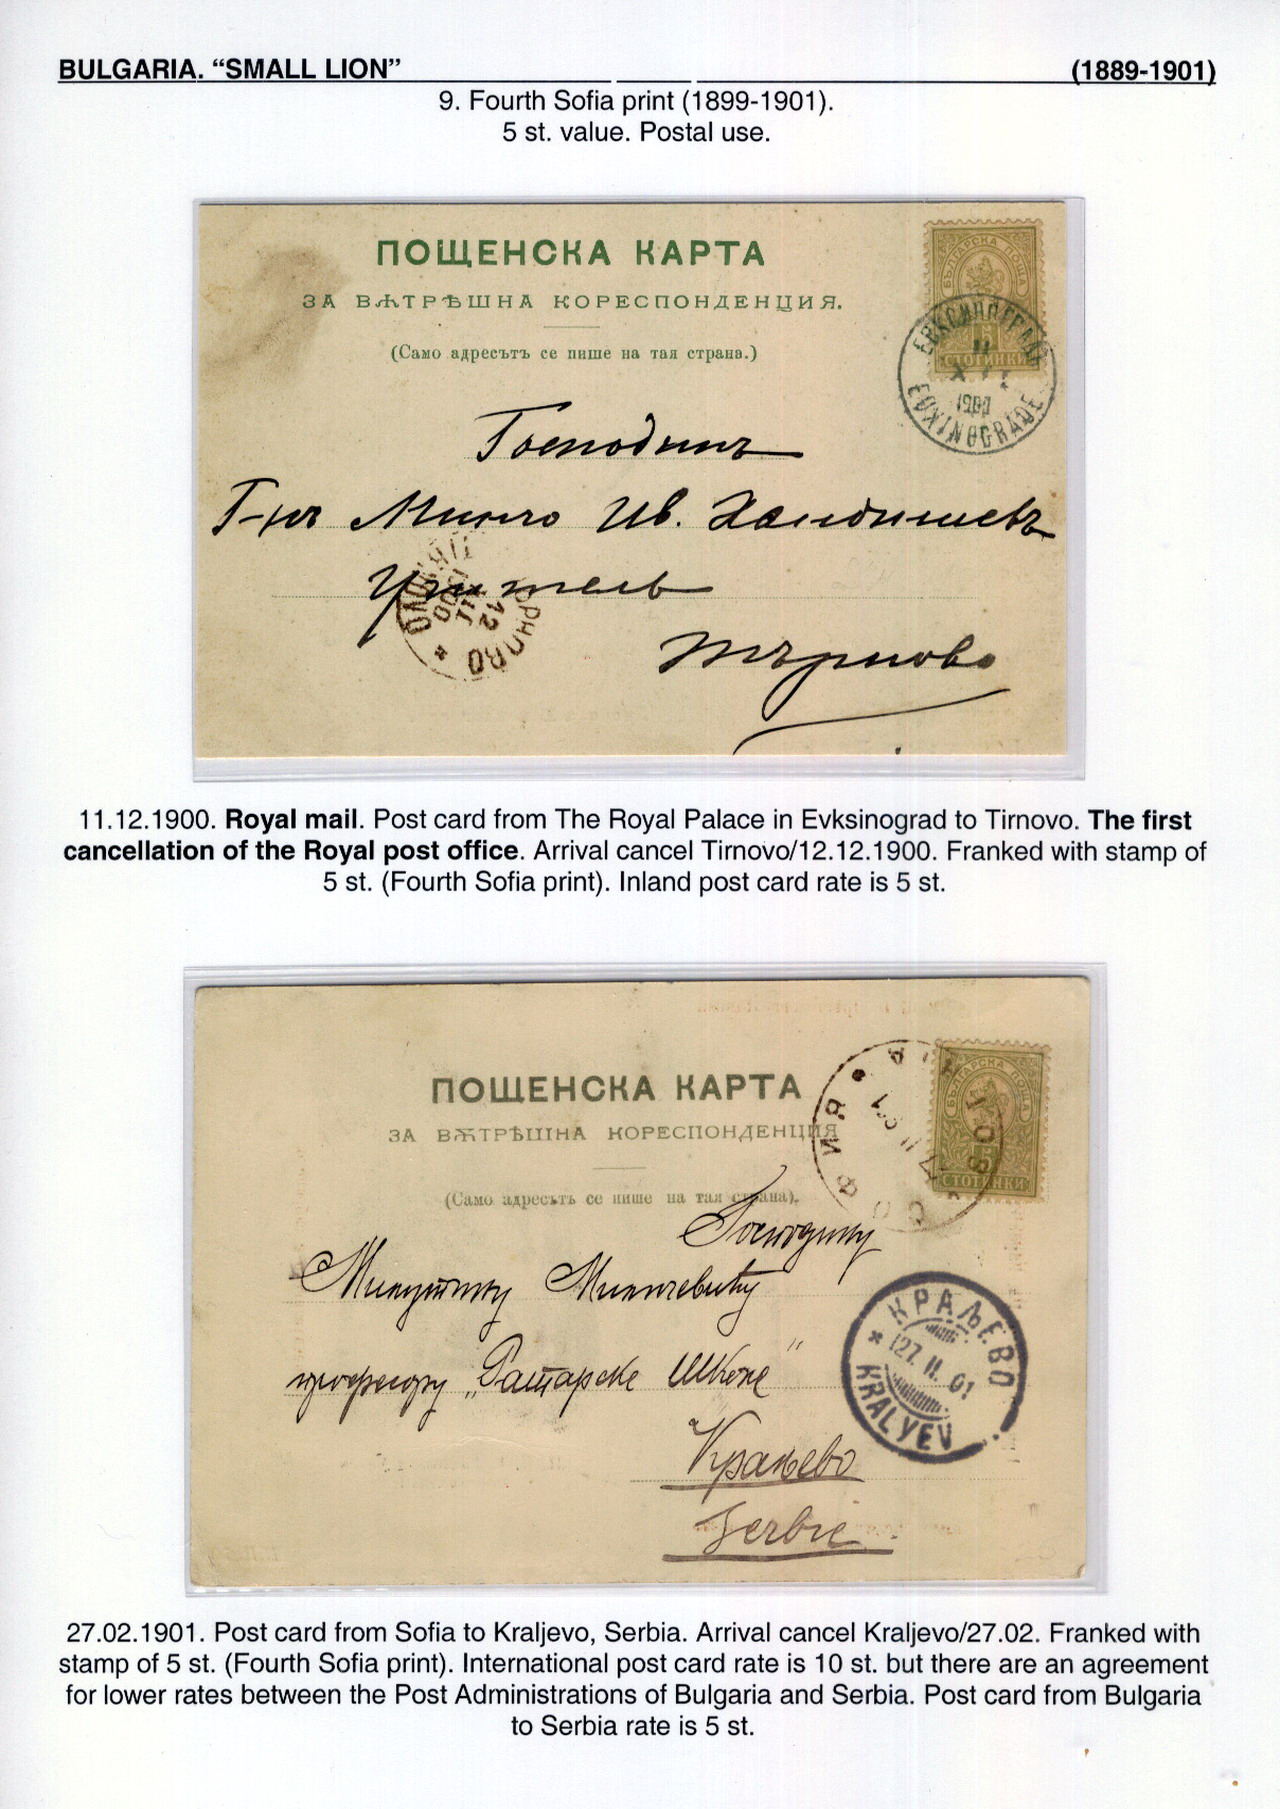 BULGARIA. “SMALL LION” (1889-1901)
9. Fourth Sofia print (1899-1901).
5 st. value. Postal use.
ПОЩЕНСКА КАРТА
ЗА ВѪТРѢШНА КОРЕСПОНДЕНЦИЯ.
(Само адресътъ се пише на тая страна.)
БЪЛГАРСКА ПОЩА
5
СТОТИНКИ
ЕВКСИНОГРАДЪ
11
XII
1900
EUXINOGRADE
Господинъ
Г-нъ Минчо Ив. Хаджиевъ
Учитель
Търново
12
XII
1900
11.12.1900. Royal mail. Post card from The Royal Palace in Evksinograd to Tirnovo. The first
cancellation of the Royal post office. Arrival cancel Tirnovo/12.12.1900. Franked with stamp of
5 st. (Fourth Sofia print). Inland post card rate is 5 st.
ПОЩЕНСКА КАРТА
ЗА ВѪТРѢШНА КОРЕСПОНДЕНЦИЯ
(Само адресътъ се пише на тая страна).
БЪЛГАРСКА ПОЩА
СТОТИНКИ
СОФИЯ
Господину
Милутину
професору „Ратарске Школе“
Краљево
Serbie
КРАЉЕВО
27. II. 01
KRALYEV
27.02.1901. Post card from Sofia to Kraljevo, Serbia. Arrival cancel Kraljevo/27.02. Franked with
stamp of 5 st. (Fourth Sofia print). International post card rate is 10 st. but there are an agreement
for lower rates between the Post Administrations of Bulgaria and Serbia. Post card from Bulgaria
to Serbia rate is 5 st.